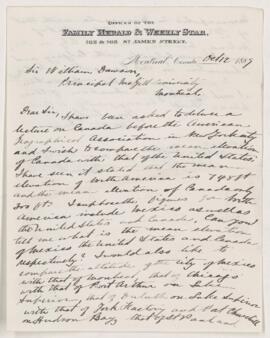 OFFICES OF THE
FAMILY HERALD & WEEKLY STAR,
162 & 163 ST JAMES STREET.
Montreal, Canada Oct 12 1887
Sir William Dawson,
Principal McGill University
Montreal.
Dear Sir, I have been asked to deliver a
lecture on Canada before the American
Geographical Association in New York city
and I wish to compare the mean elevation
of Canada with that of the United States.
I have seen it stated that the mean
elevation of North America is 748 ft
and the mean elevation of Canada only
300 ft. I suppose the figures for North
America include Mexico as well as
the United States and Canada. Can you
tell me what is the mean elevation
of Mexico the United States and Canada
respectively? I would also like to
compare the altitude of the city of Mexico
with that of Montreal, that of Chicago
with that of Port Arthur on Lake
Superior, that of Duluth on Lake Superior
with that of York Factory and Fort Churchill
on Hudson Bay, that of St Paul and